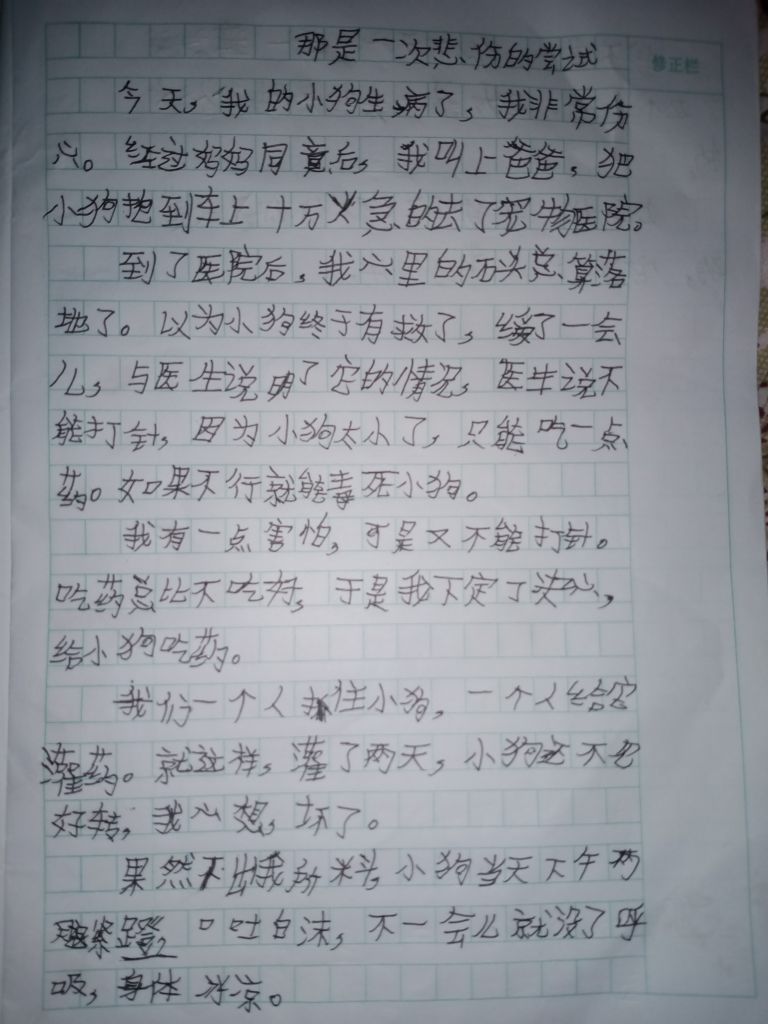 那是一次悲伤的尝试
修正栏
今天，我的小狗生病了，我非常伤
心。经过妈妈同意后，我叫上爸爸，把
小狗抱到车上十万火急的去了宠物医院。
到了医院后，我心里的石头总算落
地了。以为小狗终于有救了，缓了一会
儿，与医生说明了它的情况，医生说不
能打针，因为小狗太小了，只能吃一点
药。如果不行就能毒死小狗。
我有一点害怕，可是又不能打针。
吃药总比不吃好，于是我下定了决心，
给小狗吃药。
我们一个人抓住小狗，一个人给它
灌药。就这样，灌了两天，小狗还不见
好转，我心想，坏了。
果然不出我所料，小狗当天下午两
腿紧蹬，口吐白沫，不一会儿就没了呼
吸，身体冰凉。